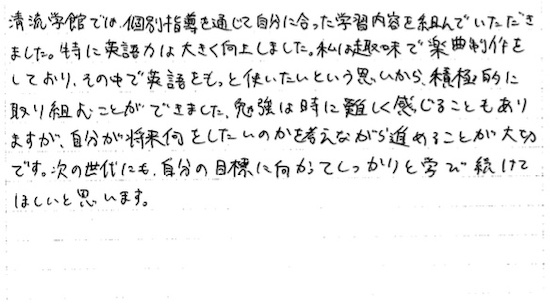 清流学館では、個別指導を通じて自分に合った学習内容を組んでいただき
ました。特に英語力は大きく向上しました。私は趣味で楽曲制作を
しており、その中で英語をもっと使いたいという思いから、積極的に
取り組むことができました。勉強は時に難しく感じることもあり
ますが、自分が将来何をしたいのかを考えながら進めることが大切
です。次の世代にも、自分の目標に向かってしっかりと学び続けて
ほしいと思います。